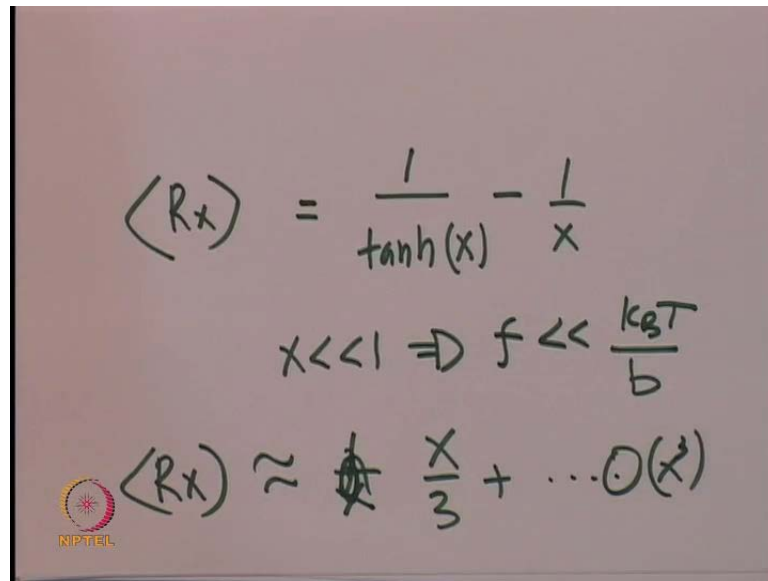 ⟨Rx⟩ = 1/tanh(x) − 1/x
x<<1 ⇒ f << k_BT/b
⟨Rx⟩ ≈ x/3 + ...O(x³)
NPTEL